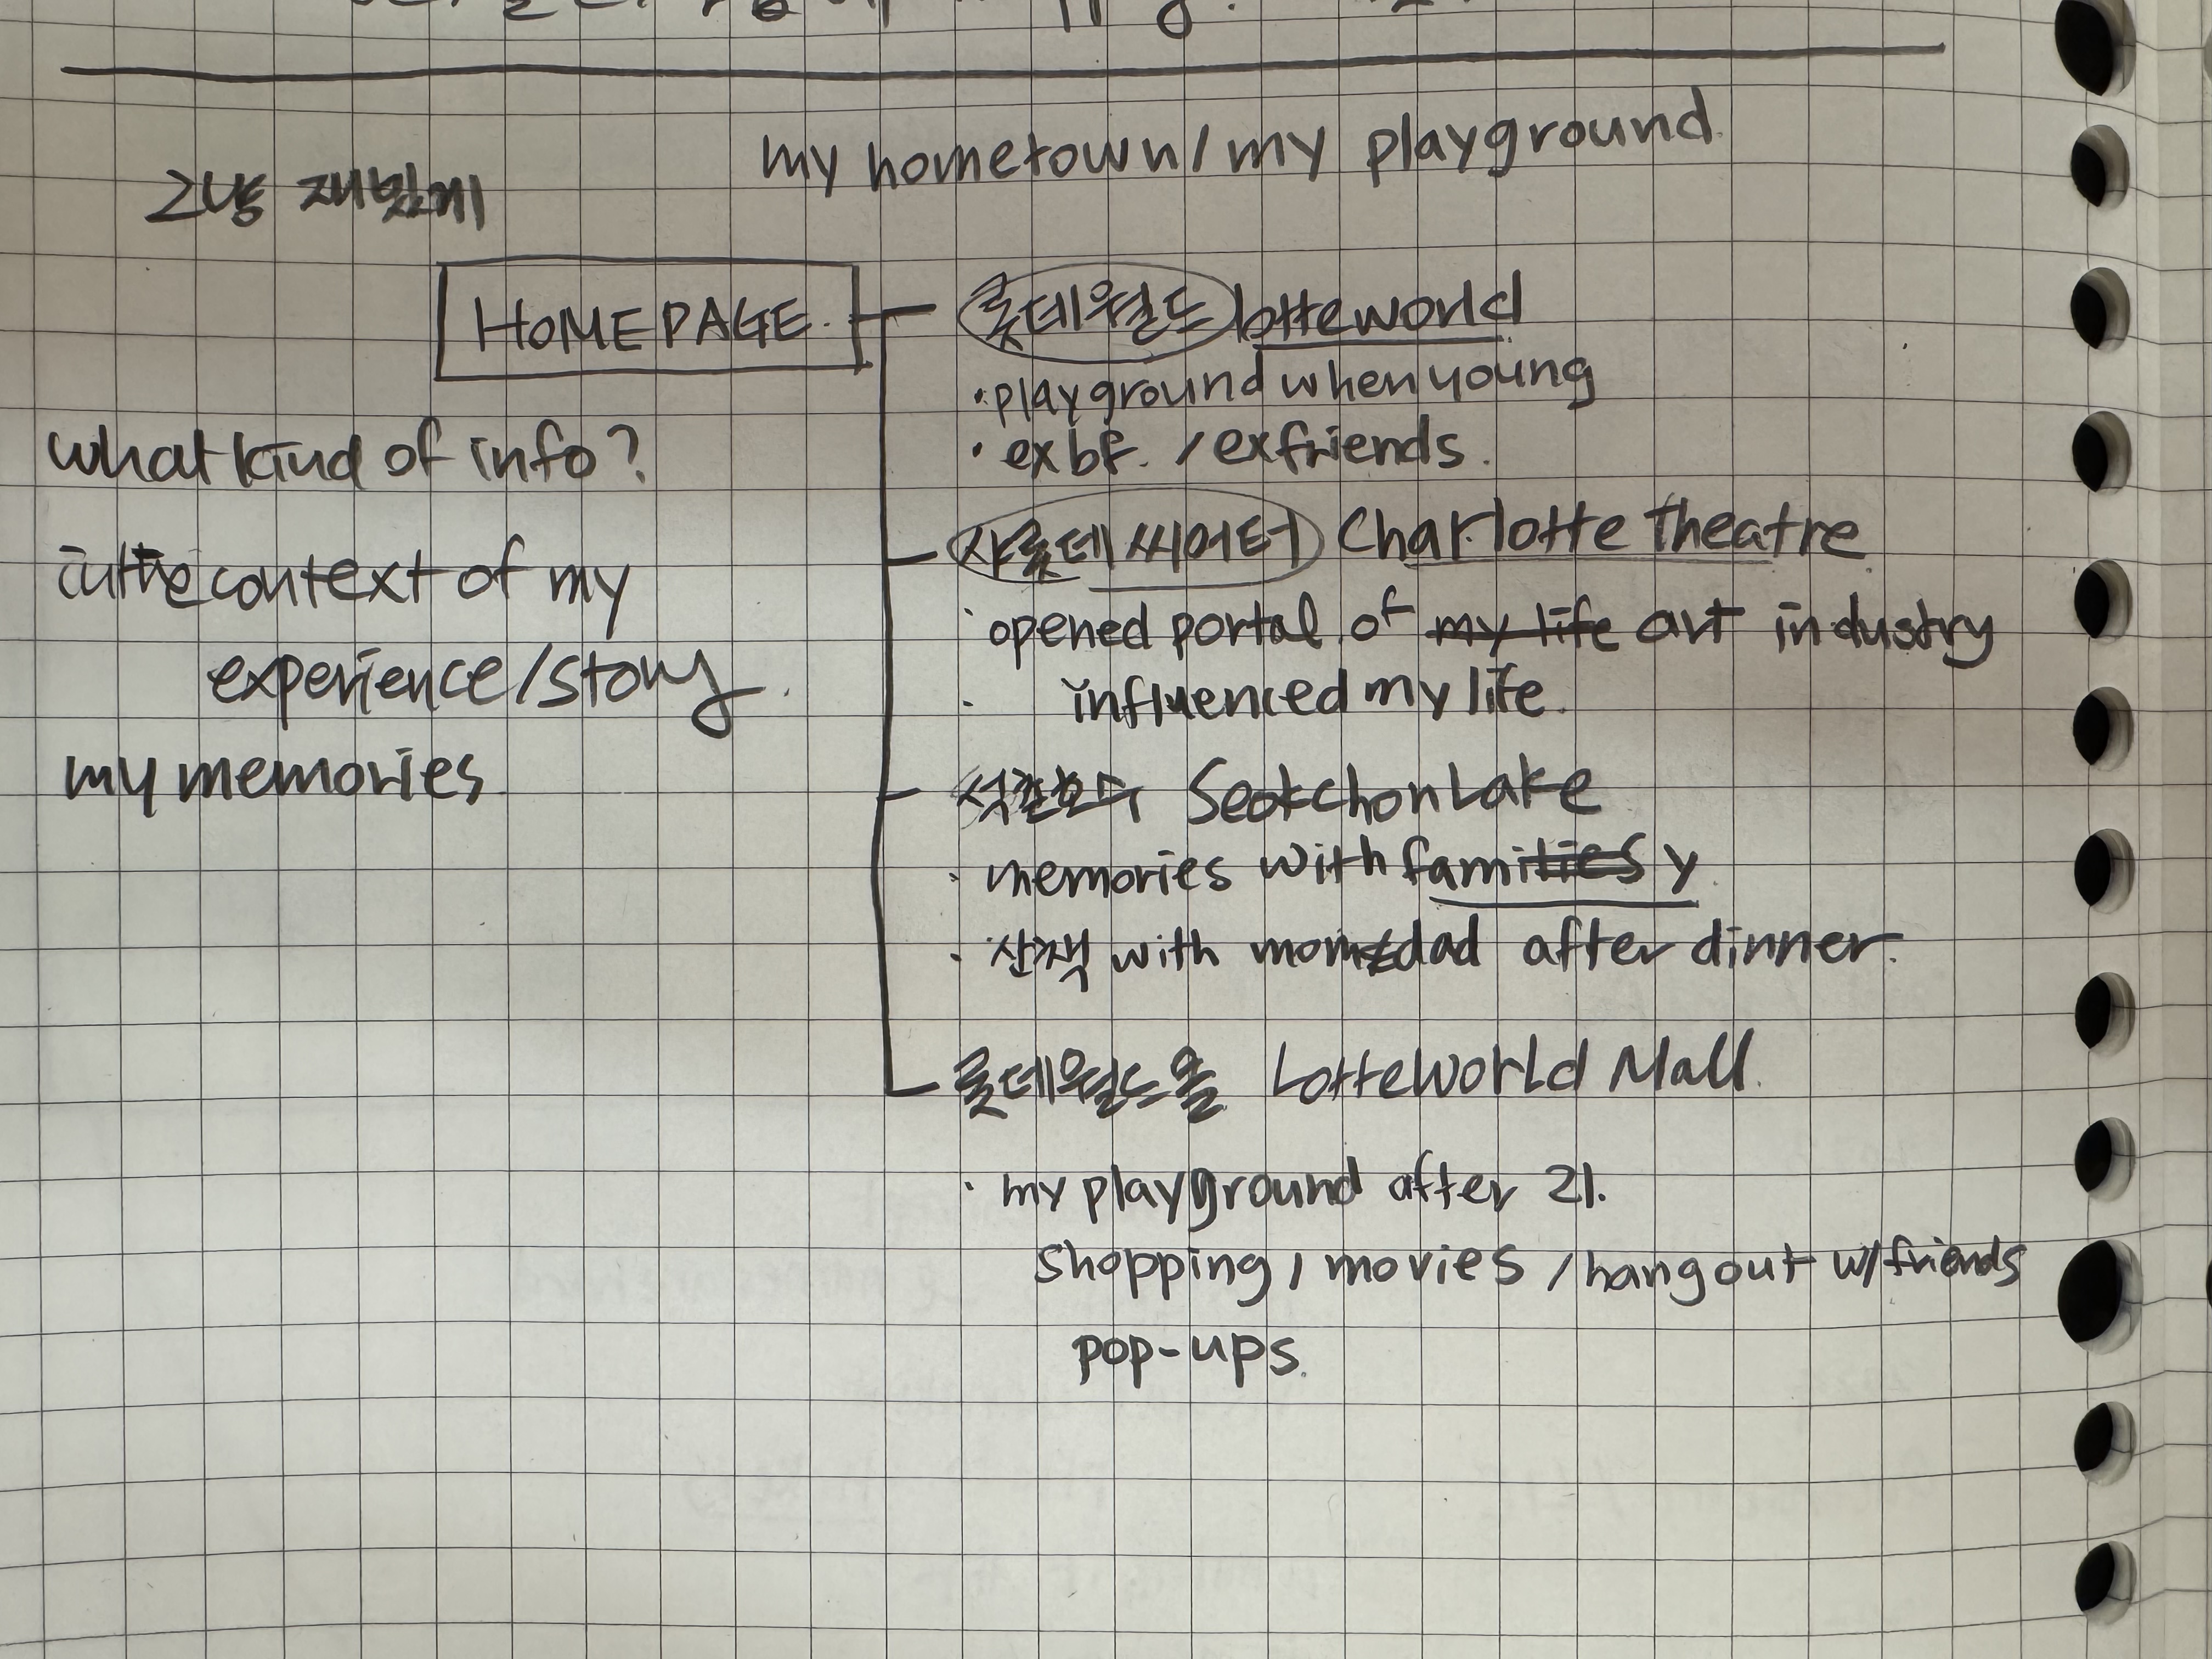 my hometown/my playground.
그냥 재밌게
HOMEPAGE.
롯데월드 lotteworld
· playground when young
· ex bf. / exfriends.
what kind of info?
in the context of my
experience/story.
my memories.
샤롯데 씨어터 Charlotte Theatre.
· opened portal of my life art industry
· influenced my life.
석촌호수 Seokchon Lake
· memories with families y.
· 산책 with mom & dad after dinner.
롯데월드몰 Lotteworld Mall.
· my playground after 21.
shopping, movies / hang out w/ friends
pop-ups.